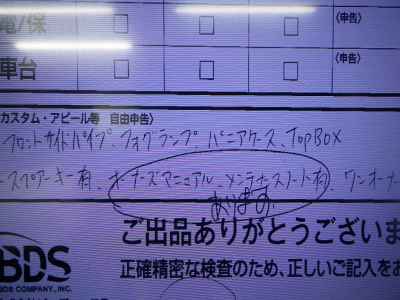 電/保 〈申告〉
車台 〈申告〉
カスタム・アピール等 自由申告〉
フロントサイドパイプ、フォグランプ、パニアケース、TopBOX
スペアーキー有、オーナーズマニュアル、メンテナスノート有、ワンオーナー
あります。
ご出品ありがとうございま
正確精密な検査のため、正しいご記入をお
BDS
BDS COMPANY, INC.